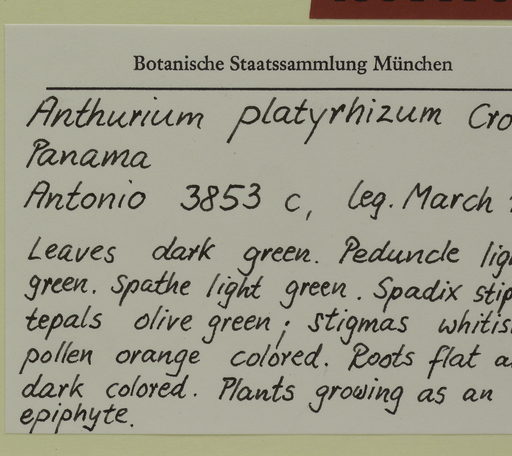 Botanische Staatssammlung München
Anthurium platyrhizum Cro
Panama
Antonio 3853 c, leg. March
Leaves dark green. Peduncle lig
green. Spathe light green. Spadix stip
tepals olive green; stigmas whitis
pollen orange colored. Roots flat a
dark colored. Plants growing as an
epiphyte.